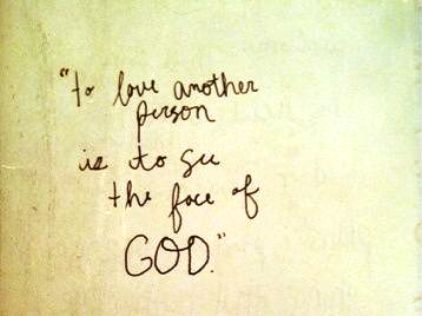 "to love another
person
is to see
the face of
GOD."